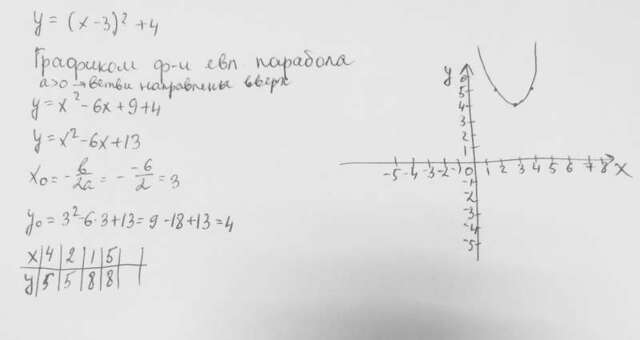 y = (x-3)² + 4
Графиком ф-и явл. парабола
a>0 → ветви направлены вверх
y = x² - 6x + 9 + 4
y = x² - 6x + 13
x₀ = - b/2a = - -6/2 = 3
y₀ = 3² - 6·3 + 13 = 9 - 18 + 13 = 4
x | 4 | 2 | 1 | 5
y | 5 | 5 | 8 | 8
y
6
5
4
3
2
1
-5 -4 -3 -2 -1 0 1 2 3 4 5 6 7 8 x
-1
-2
-3
-4
-5